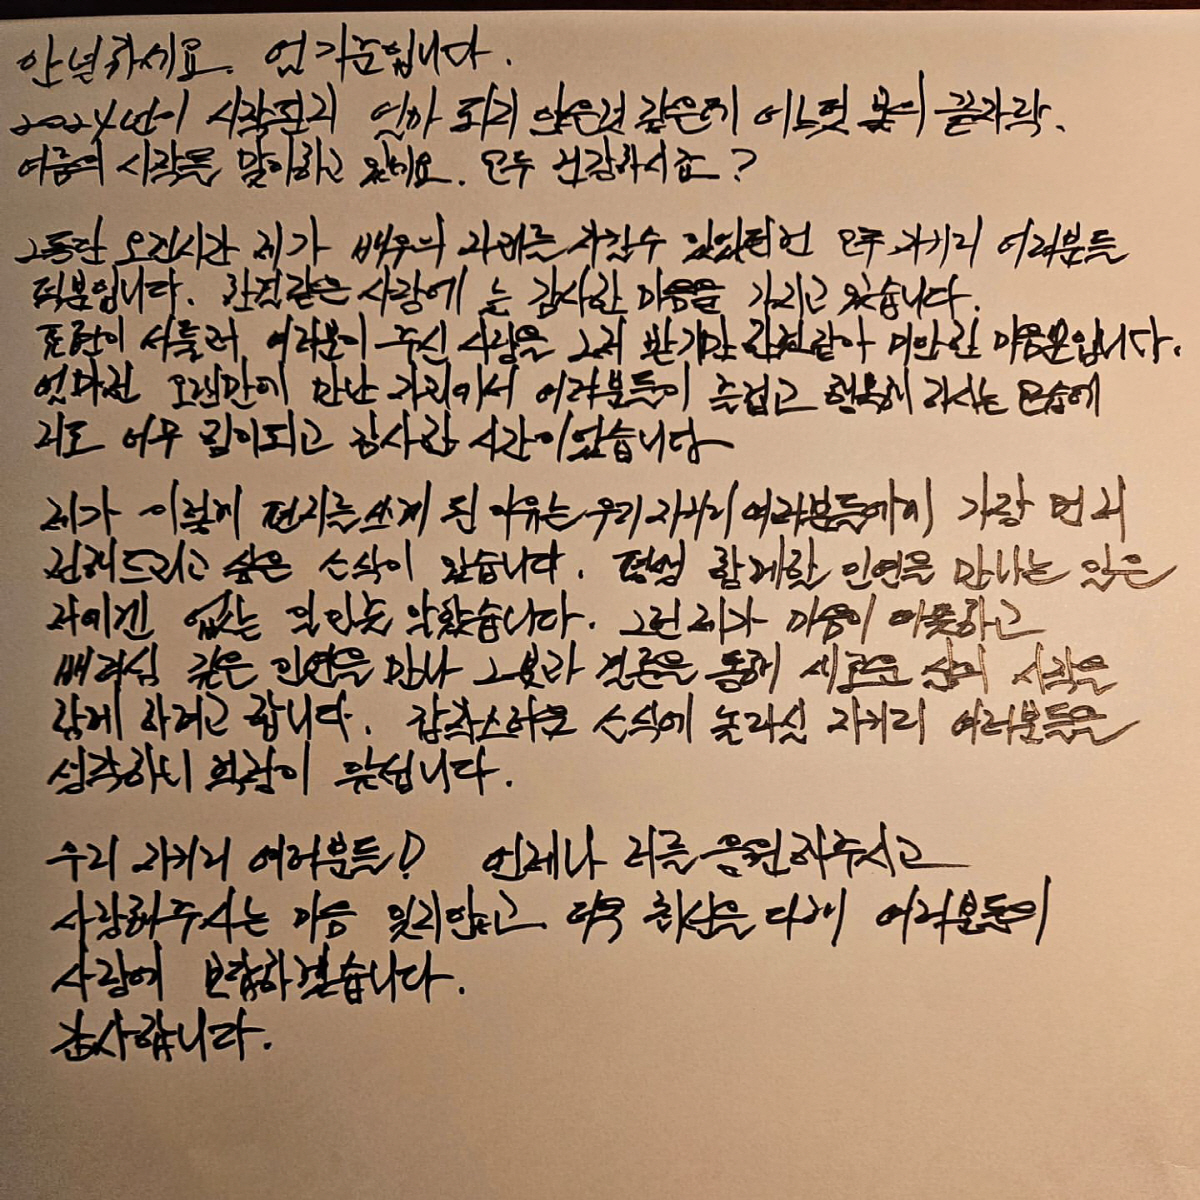 안녕하세요. 엄기준입니다.
2024년이 시작된지 얼마 되지 않은것 같은데 어느덧 봄의 끝자락.
여름의 시작을 맞이하고 있네요. 모두 건강하시죠?
그동안 오랜시간 제가 배우의 자리를 지킬수 있었던건 모두 자기리 여러분들
덕분입니다. 한결같은 사랑에 늘 감사한 마음을 가지고 있습니다.
표현이 서툴러 여러분이 주신 사랑을 그저 받기만 한것같아 미안한 마음뿐입니다.
얼마전 오랜만에 만난 자리에서 여러분들이 즐겁고 행복해 하시는 모습에
저도 너무 힘이되고 감사한 시간이었습니다
제가 이렇게 편지를 쓰게 된 이유는 우리 자기리 여러분들에게 가장 먼저
전해드리고 싶은 소식이 있습니다. 평생 함께할 인연을 만나는 일은
저에겐 없는 일인줄 알았습니다. 그런 제가 마음이 따뜻하고
배려심 깊은 인연을 만나 그녀와 결혼을 통해 새로운 삶의 시작을
함께 하려고 합니다. 갑작스러운 소식에 놀라실 자기리 여러분들을
생각하니 걱정이 앞섭니다.
우리 자기리 여러분들! 언제나 저를 응원해주시고
사랑해주시는 마음 잊지않고 더욱 최선을 다해 여러분들의
사랑에 보답하겠습니다.
감사합니다.